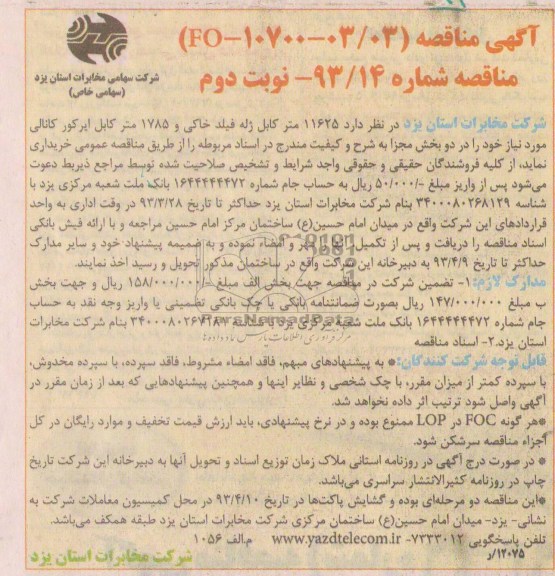 آگهی مناقصه (FO-۱۰۷۰۰-۰۳/۰۳)
مناقصه شماره ۹۳/۱۴- نوبت دوم
شرکت سهامی مخابرات استان یزد
(سهامی خاص)
شرکت مخابرات استان یزد در نظر دارد ۱۱۶۲۵ متر کابل ژله فیلد خاکی و ۱۷۸۵ متر کابل ایرکور کانالی
مورد نیاز خود را در دو بخش مجزا به شرح و کیفیت مندرج در اسناد مربوطه را از طریق مناقصه عمومی خریداری
نماید، از کلیه فروشندگان حقیقی و حقوقی واجد شرایط و تشخیص صلاحیت شده توسط مراجع ذیربط دعوت
می‌شود پس از واریز مبلغ -/۵۰/۰۰۰ ریال به حساب جام شماره ۱۶۴۴۴۴۴۴۷۲ بانک ملت شعبه مرکزی یزد با
شناسه ۳۴۰۰۰۸۰۲۶۸۱۲۹ بنام شرکت مخابرات استان یزد حداکثر تا تاریخ ۹۳/۳/۲۸ در وقت اداری به واحد
قراردادهای این شرکت واقع در میدان امام حسین(ع) ساختمان مرکز امام حسین مراجعه و با ارائه فیش بانکی
اسناد مناقصه را دریافت و پس از تکمیل و مهر و امضاء نموده و به ضمیمه پیشنهاد خود و سایر مدارک
حداکثر تا تاریخ ۹۳/۴/۹ به دبیرخانه این شرکت واقع در ساختمان مذکور تحویل و رسید اخذ نمایند.
مدارک لازم: ۱- تضمین شرکت در مناقصه جهت بخش الف مبلغ ۱۵۸/۰۰۰/۰۰۰ ریال و جهت بخش
ب مبلغ ۱۴۷/۰۰۰/۰۰۰ ریال بصورت ضمانتنامه بانکی یا چک بانکی تضمینی یا واریز وجه نقد به حساب
جام شماره ۱۶۴۴۴۴۴۴۷۲ بانک ملت شعبه مرکزی یزد با شناسه بنام شرکت مخابرات
استان یزد. ۲- اسناد مناقصه
قابل توجه شرکت کنندگان: * به پیشنهادهای مبهم، فاقد امضاء مشروط، فاقد سپرده، با سپرده مخدوش،
با سپرده کمتر از میزان مقرر، با چک شخصی و نظایر اینها و همچنین پیشنهادهایی که بعد از زمان مقرر در
آگهی واصل شود ترتیب اثر داده نخواهد شد.
*هر گونه FOC در LOP ممنوع بوده و در نرخ پیشنهادی، باید ارزش قیمت تخفیف و موارد رایگان در کل
اجزاء مناقصه سرشکن شود.
* در صورت درج آگهی در روزنامه استانی ملاک زمان توزیع اسناد و تحویل آنها به دبیرخانه این شرکت تاریخ
چاپ در روزنامه کثیرالانتشار سراسری می‌باشد.
*این مناقصه دو مرحله‌ای بوده و گشایش پاکت‌ها در تاریخ ۹۳/۴/۱۰ در محل کمیسیون معاملات شرکت به
نشانی- یزد- میدان امام حسین(ع) ساختمان مرکزی شرکت مخابرات استان یزد طبقه همکف می‌باشد.
تلفن پاسخگویی ۷۳۳۳۰۱۲- www.yazdtelecom.ir م.الف ۱۰۵۶
۱۲۰۷۵/ر
شرکت مخابرات استان یزد